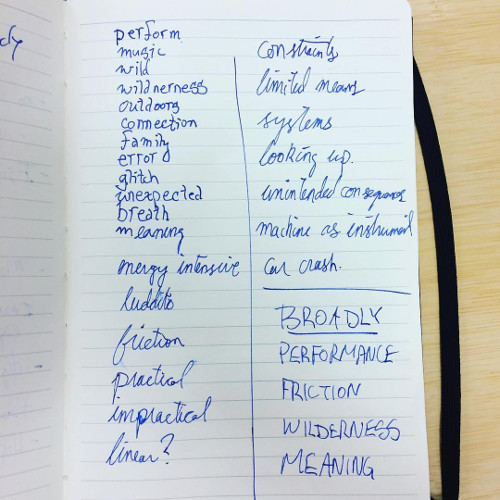 perform
music
wild
wilderness
outdoors
connection
family
error
glitch
unexpected
breath
meaning
energy intensive
luddito
friction
practical
impractical
linear?
constraints
limited means
systems
looking up.
unintended consequences
machine as instrument
car crash.
BROADLY
PERFORMANCE
FRICTION
WILDERNESS
MEANING